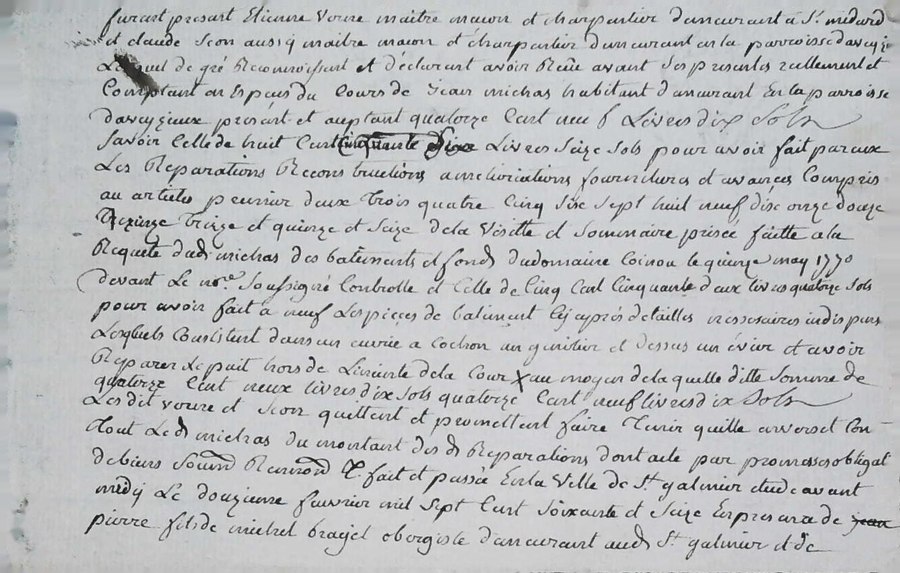 furant présant Etienne voure maitre macon et charpantier damurant à St. médard
et claude seon aussy maitre macon et charpantier damurant en la parroisse daveyz
Lesquel de gré Reconnoissent et déclarent avoir Reçu avant ses presentes reellement et
Comptant en Espeus du Cours de jean michas habitant damurant En la parroisse
daveyzieux présent et aceptant quatorze Cent neuf Livres dix Sols
savoir Celle de huit Cent Cinquante Livres seize sols pour avoir fait par eux
Les Reparations Reconstructions ameliorations fournitures et avances Compris
au articles premier deux trois quatre Cinq six sept huit neuf dix onze douze
treize et quinze et seize de la visitte et sommaire prisée faitte a la
Requete dud michas des batiments et fonds du domaine Coinou le quinze may 1770
devant Le nore. soussigné Controllé et Celle de Cinq Cent Cinquante deux livres quatorze sols
pour avoir fait a neuf Les pièces de batiment Cy après detaillés necessaires indispens
Lesquels Consistent dans un écurie a cochon un grenier et dessus un évier et avoir
Reparer Le puit hors de L'enceinte de la Cour X au moyen de la quelle ditte somme de
quatorze Cent neux livres dix sols quatorze Cent neuf livres dix sols
Les dit voure et seon quittent et promettent faire tenir quitte envers et Con-
tout Le d michas du montant des d Reparations dont acte par promesses obligat
de biens soumd Renond &. fait et passée En la ville de St galmier etude avant
midy Le douzieme fevrier mil sept Cent soixante et seize En presence de jean
pierre fils de michel brayet obergiste damurant aud St galmier et de